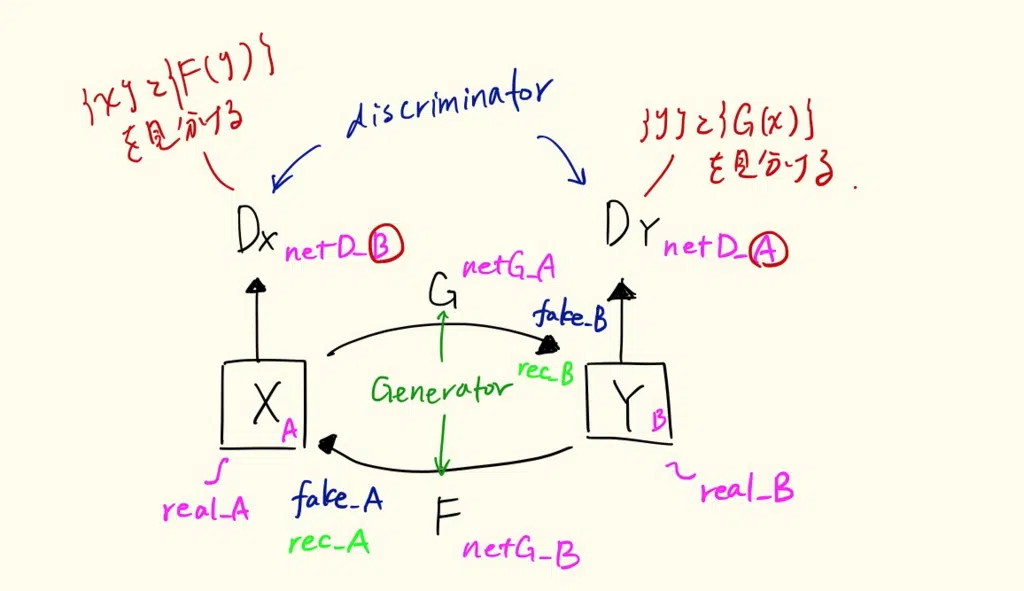 {x}と{F(y)}
を見分ける
discriminator
{y}と{G(x)}
を見分ける.
Dx
netD_B
DY
netD_A
G
netG_A
fake_B
rec_B
Generator
X
A
Y
B
real_A
fake_A
rec_A
F
netG_B
real_B